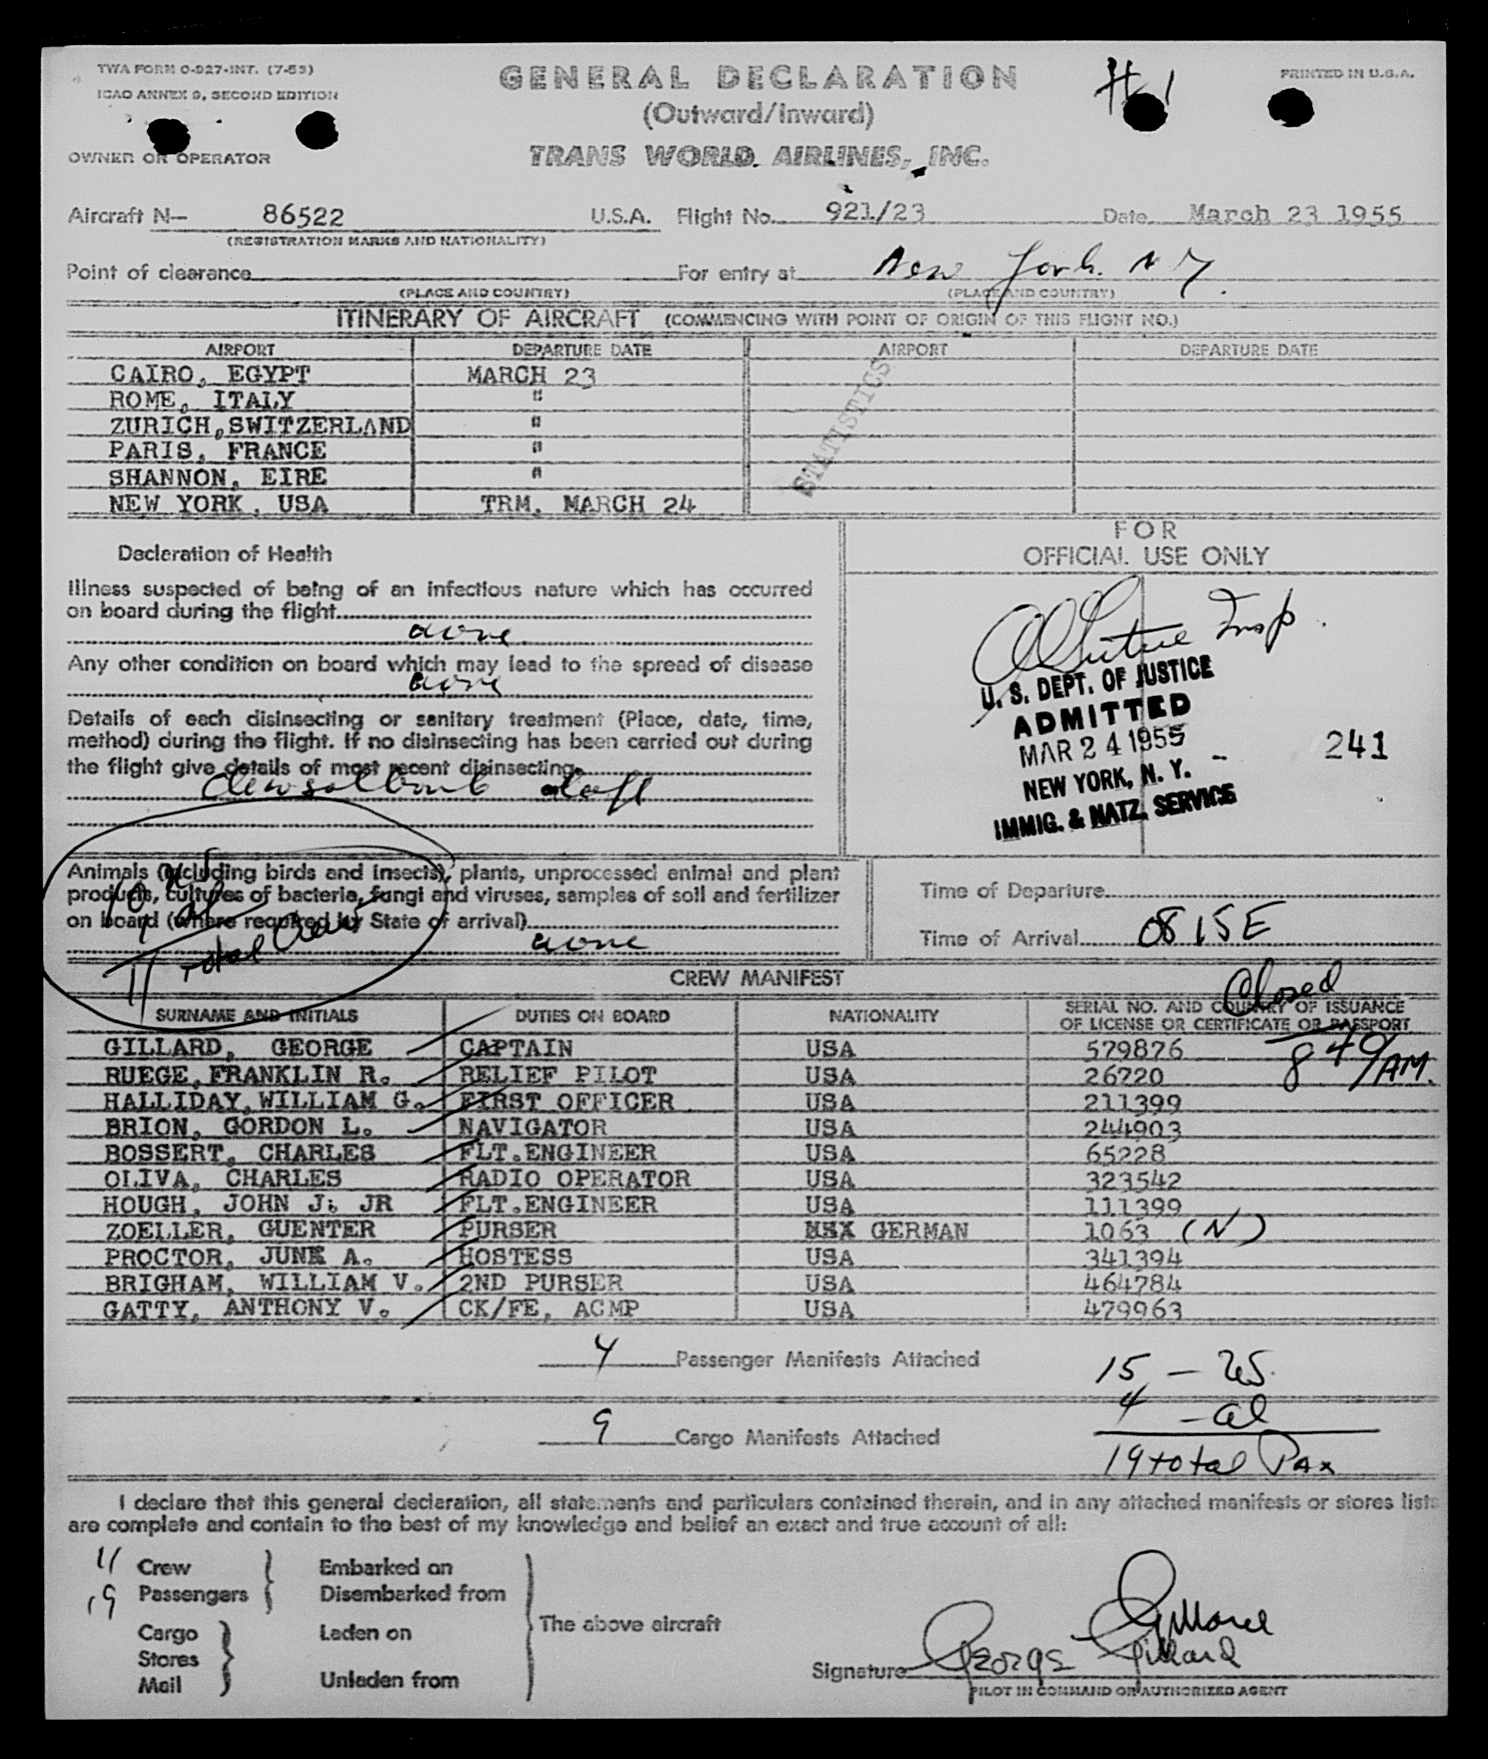 TWA FORM O-927-INT. (7-53)
ICAO ANNEX 9, SECOND EDITION
GENERAL DECLARATION
(Outward/Inward)
# 1
PRINTED IN U.S.A.
OWNER OR OPERATOR
TRANS WORLD AIRLINES, INC.
Aircraft N— 86522 U.S.A. Flight No. 921/23 Date March 23 1955
(REGISTRATION MARKS AND NATIONALITY)
Point of clearance For entry at New York. N Y.
(PLACE AND COUNTRY) (PLACE AND COUNTRY)
ITINERARY OF AIRCRAFT (COMMENCING WITH POINT OF ORIGIN OF THIS FLIGHT NO.)
AIRPORT DEPARTURE DATE AIRPORT DEPARTURE DATE
CAIRO, EGYPT MARCH 23
ROME, ITALY "
ZURICH,SWITZERLAND "
PARIS, FRANCE "
SHANNON, EIRE "
NEW YORK, USA TRM. MARCH 24
STATISTICS
Declaration of Health
FOR
OFFICIAL USE ONLY
Illness suspected of being of an infectious nature which has occurred
on board during the flight
none
Any other condition on board which may lead to the spread of disease
none
Details of each disinsecting or sanitary treatment (Place, date, time,
method) during the flight. If no disinsecting has been carried out during
the flight give details of most recent disinsecting
Insp.
U. S. DEPT. OF JUSTICE
ADMITTED
MAR 24 1955 - 241
NEW YORK, N. Y.
IMMIG. & NATZ. SERVICE
Animals (including birds and insects), plants, unprocessed animal and plant
products, cultures of bacteria, fungi and viruses, samples of soil and fertilizer
on board (where required by State of arrival)
none
10 US
1 al
11 total Crew
Time of Departure
Time of Arrival 0815E
CREW MANIFEST
Closed
8 40/AM.
SURNAME AND INITIALS DUTIES ON BOARD NATIONALITY SERIAL NO. AND COUNTRY OF ISSUANCE
OF LICENSE OR CERTIFICATE OR PASSPORT
GILLARD, GEORGE CAPTAIN USA 579876
RUEGE,FRANKLIN R. RELIEF PILOT USA 26720
HALLIDAY,WILLIAM G. FIRST OFFICER USA 211399
BRION, GORDON L. NAVIGATOR USA 244903
BOSSERT, CHARLES FLT.ENGINEER USA 65228
OLIVA, CHARLES RADIO OPERATOR USA 323542
HOUGH, JOHN J. JR FLT.ENGINEER USA 111399
ZOELLER, GUENTER PURSER GERMAN 1063 (N)
PROCTOR, JUNE A. HOSTESS USA 341394
BRIGHAM, WILLIAM V. 2ND PURSER USA 464784
GATTY, ANTHONY V. CK/FE, ACMP USA 479963
4 Passenger Manifests Attached
15 - US.
4 - al
9 Cargo Manifests Attached
19 total Pax
I declare that this general declaration, all statements and particulars contained therein, and in any attached manifests or stores lists
are complete and contain to the best of my knowledge and belief an exact and true account of all:
11 Crew Embarked on
19 Passengers Disembarked from
The above aircraft
Cargo Laden on
Stores
Mail Unladen from
Gillard
Signature George Gillard
PILOT IN COMMAND OR AUTHORIZED AGENT